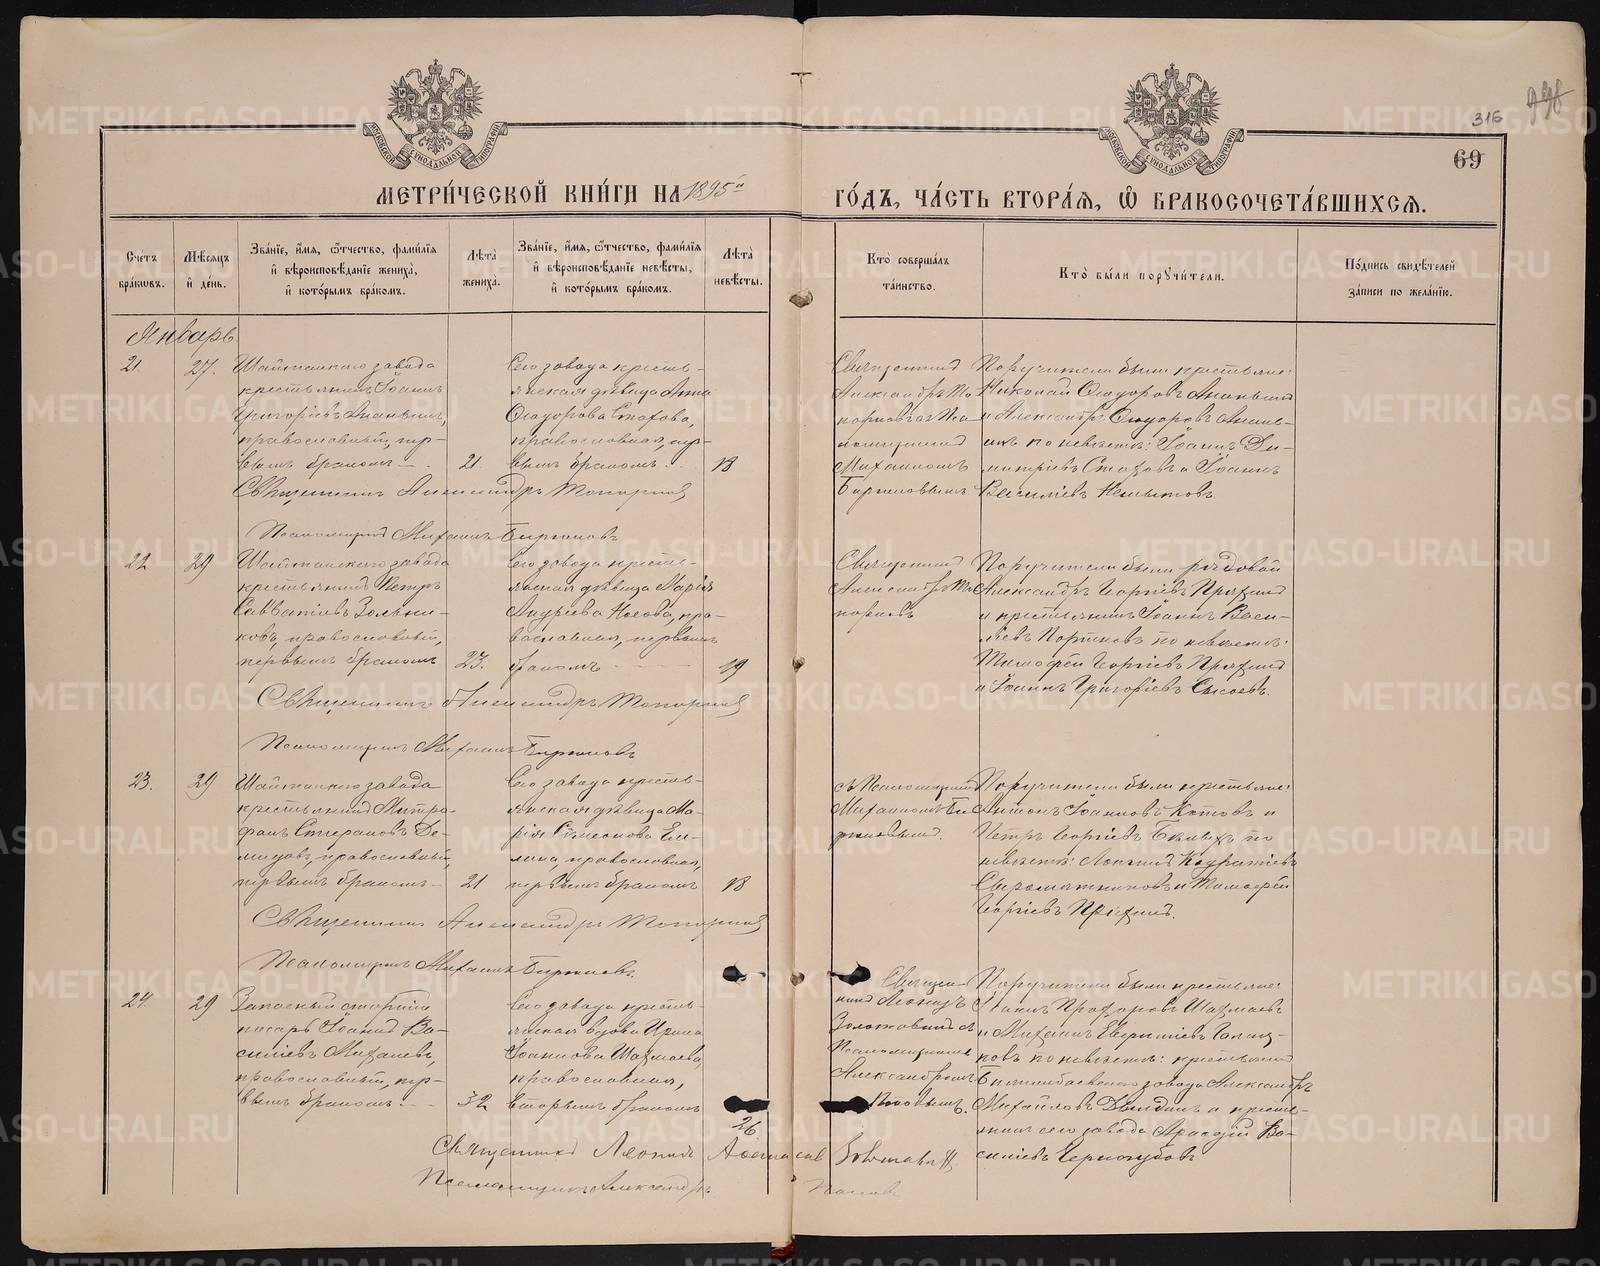 316
69
МЕТРИ́ЧЕСКОЙ КНИ́ГИ НА 1895й ГО́ДЪ, ЧА́СТЬ ВТОРА́Я, Ѽ БРАКОСОЧЕТА́ВШИХСЯ.
Сче́тъ бра́ковъ.
Мѣ́сяцъ и҆ де́нь.
Зва́нїе, и҆́мя, ѻ҆́тчество, фами́лїя и҆ вѣроисповѣ́данїе жениха̀, и҆ кото́рымъ бра́комъ.
Лѣ́та жениха̀.
Зва́нїе, и҆́мя, ѻ҆́тчество, фами́лїя и҆ вѣроисповѣ́данїе невѣ́сты, и҆ кото́рымъ бра́комъ.
Лѣ́та невѣ́сты.
Кто̀ соверша́лъ та́инство.
Кто̀ бы́ли порꙋчи́тели.
По́дпись свидѣ́телей за́писи по жела́нїю.
Январь
21
27.
Шайтанскаго завода
крестьянинъ Іоаннъ
Григоріевъ Ананьинъ,
православный, пер-
вымъ бракомъ
21
Сего завода кресть-
янская дѣвица Анна
Ѳеодорова Стахова,
православная, пер-
вымъ бракомъ.
18
Священникъ
Александръ То
порковъ съ Пса-
ломщикомъ
Михаиломъ
Бирюковымъ.
Поручители были крестьяне:
Николай Ѳеодоровъ Ананьинъ
и Александръ Ѳеодоровъ Анань-
инъ по невѣстѣ: Іоаннъ Ди-
митріевъ Стаховъ и Іоаннъ
Василіевъ
Священникъ Александръ Топорковъ
Псаломщикъ Михаилъ Бирюковъ
22
29
Шайтанскаго завода
крестьянинъ Петръ
Савватіевъ Зольни-
ковъ, православный,
первымъ бракомъ
23.
Сего завода кресть-
янская дѣвица Марія
Андреева Носова, пра-
вославная, первымъ
бракомъ
19
Священникъ
Александръ То
порковъ
Поручители были рядовой
Александръ Георгіевъ Пряхинъ
и крестьянинъ Іоаннъ Васи-
ліевъ по невѣстѣ:
Тимофей Георгіевъ Пряхинъ
и Іоаннъ Григоріевъ Сысоевъ.
Священникъ Александръ Топорковъ
Псаломщикъ Михаилъ Бирюковъ
23.
29
Шайтанскаго завода
крестьянинъ Митро-
фанъ Стефановъ Де-
мидовъ, православный,
первымъ бракомъ
21
Сего завода кресть-
янская дѣвица Ма-
рія Симеонова Ел-
кина, православная,
первымъ бракомъ
18
съ Псаломщикомъ
Михаиломъ Би
рюковымъ.
Поручители были крестьяне:
Антонъ Іоанновъ Котовъ и
Петръ Георгіевъ Бѣлыхъ по
невѣстѣ: Кодратіевъ
Сыромятниковъ и Тимофей
Георгіевъ Пряхинъ.
Священникъ Александръ Топорковъ
Псаломщикъ Михаилъ Бирюковъ.
24.
29
Запасный старшій
писарь Іоаннъ Ва-
силіевъ Михалевъ,
православный, пер-
вымъ бракомъ.
32
Сего завода кресть-
янская вдова Ирина
Іоаннова Шахмаева,
православная,
вторымъ бракомъ
26.
Священ-
никъ Леонидъ
съ
Псаломщикомъ
Александромъ
Поповымъ.
Поручители были крестьяне:
Іоаннъ Прохоровъ Шахмаевъ
и Михаилъ
ковъ по невѣстѣ: крестьянинъ
Билимбаевскаго завода Александръ
Михайловъ и кресть-
янинъ сего завода Аркадій Ва-
силіевъ Черноскутовъ
Священникъ Леонидъ
Псаломщикъ Александръ Поповъ